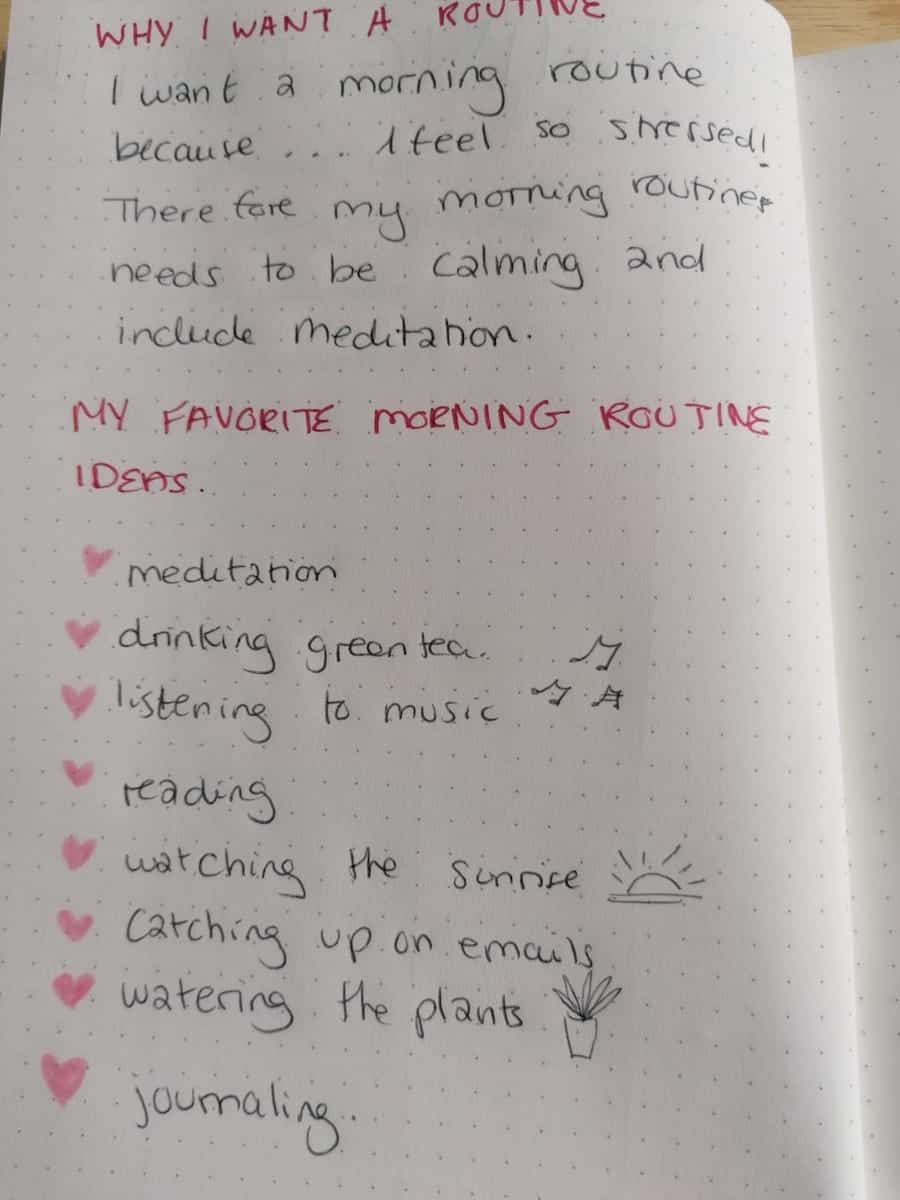 WHY I WANT A ROUTINE
I want a morning routine
because .... I feel so stressed!
Therefore my morning routine
needs to be calming and
include meditation.
MY FAVORITE MORNING ROUTINE
IDEAS.
meditation
drinking green tea.
listening to music
reading
watching the sunrise
Catching up on emails
watering the plants
journaling.